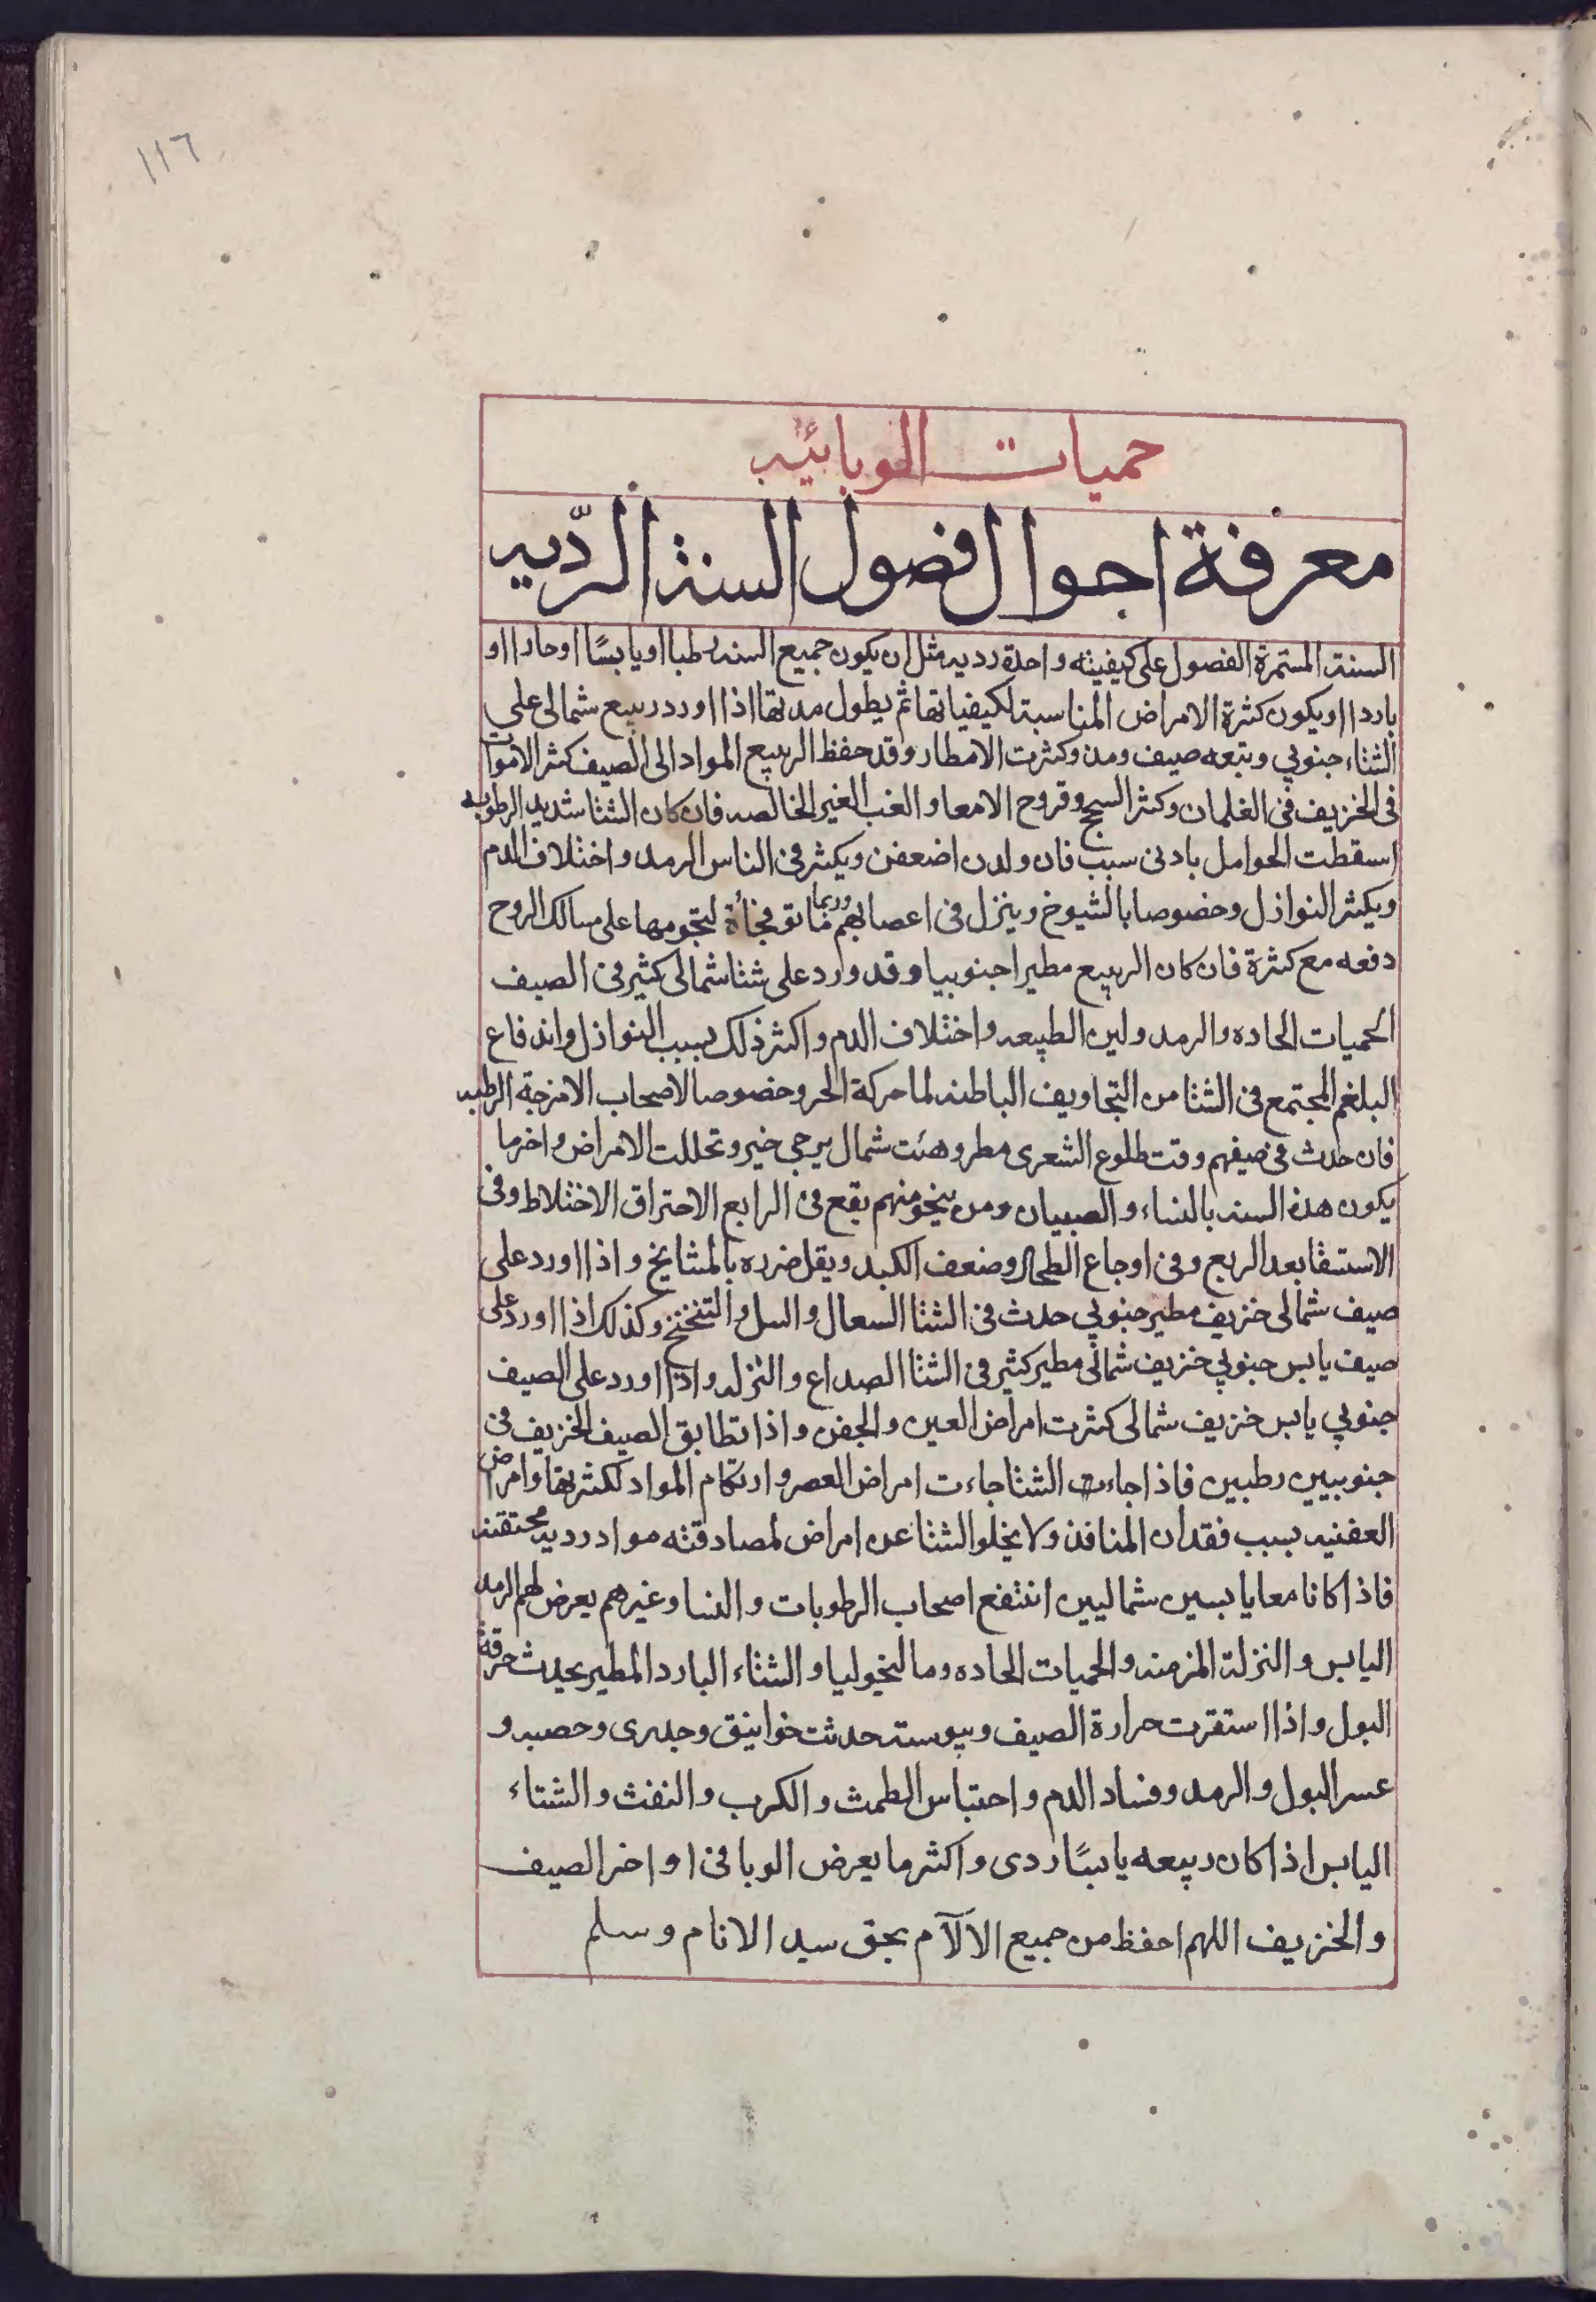 ١١٦
حميات الوبائيه
معرفة احوال فصول السنة الرّديه
السنة المستمرة الفصول على كيفيته واحدة رديه مثل ان يكون جميع السنه رطبا او يابسًا او حارا او
باردا او يكون كثرة الامراض المناسبة لكيفياتها ثم يطول مدتها اذا اورد ربيع شمالى على
الشتاء جنوبي وتبعه صيف ومد وكثرت الامطار وقد حفظ الربيع المواد الى الصيف كثر الاموات
فى الخريف فى الغلمان وكثر السحج وقروح الامعا والغب الغير الخالصه فان كان الشتا شديد الرطوبه
اسقطت الحوامل بادنى سبب فان ولدن اضعفن ويكثر فى الناس الرمد واختلاف الدم
ويكثر النوازل وخصوصا بالشيوخ وينزل فى اعصابهم وربما ماتو فجأة لتجومها على مسالك الروح
دفعه مع كثرة فان كان الربيع مطيرا جنوبيا وقد وارد على شتا شمالى كثير فى الصيف
الحميات الحاده والرمد ولين الطبيعه واختلاف الدم واكثر ذلك بسبب النوازل واندفاع
البلغم المجتمع فى الشتا من التجاويف الباطنه لما حركة الحر وخصوصا لاصحاب الامزجة الرطبه
فان حدث فى صيفهم وقت طلوع الشعرى مطر وهبت شمال يرجى خير وتحللت الامراض واخر ما
يكون هذه السنه بالنساء والصبيان ومن ينجو منهم يقع فى الرابع الاحتراق الاختلاط وفى
الاستسقا بعد الربع وفى اوجاع الطحال وضعف الكبد ويقل ضرره بالمشايخ واذا اورد على
صيف شمالى خريف مطير جنوبي حدث فى الشتا السعال والسل والتنخنح وكذلك اذا اورد على
صيف يابس جنوبي خريف شمالى مطير كثير فى الشتا الصداع والنزله واذا اورد على الصيف
جنوبي يابس خريف شمالى كثرت امراض العين والجفن واذا تطابق الصيف الخريف فى
جنوبيين رطبين فاذا جاءت الشتا جاءت امراض العصر وارتكام المواد لكثرتها وامراض
العفنيه بسبب فقدان المنافذ ولا يخلو الشتا عن امراض لمصادقته مواد رديه محتقنه
فاذا كانا معا يابسين شماليين انتفع اصحاب الرطوبات والنسا وغيرهم يعرض لهم الرمد
اليابس والنزلة المزمنه والحميات الحاده ومالنخوليا والشتاء البارد المطير يحدث حرقة
البول واذا استقرت حرارة الصيف ويبوسته حدثت خوانيق وجدرى وحصبه و
عسر البول والرمد وفساد الدم واحتباس الطمث والكرب والنفث والشتاء
اليابس اذا كان ربيعه يابسًا ردى واكثر ما يعرض الوبا فى اواخر الصيف
والخريف اللهم احفظ من جميع الالآم بحق سيد الانام وسلم